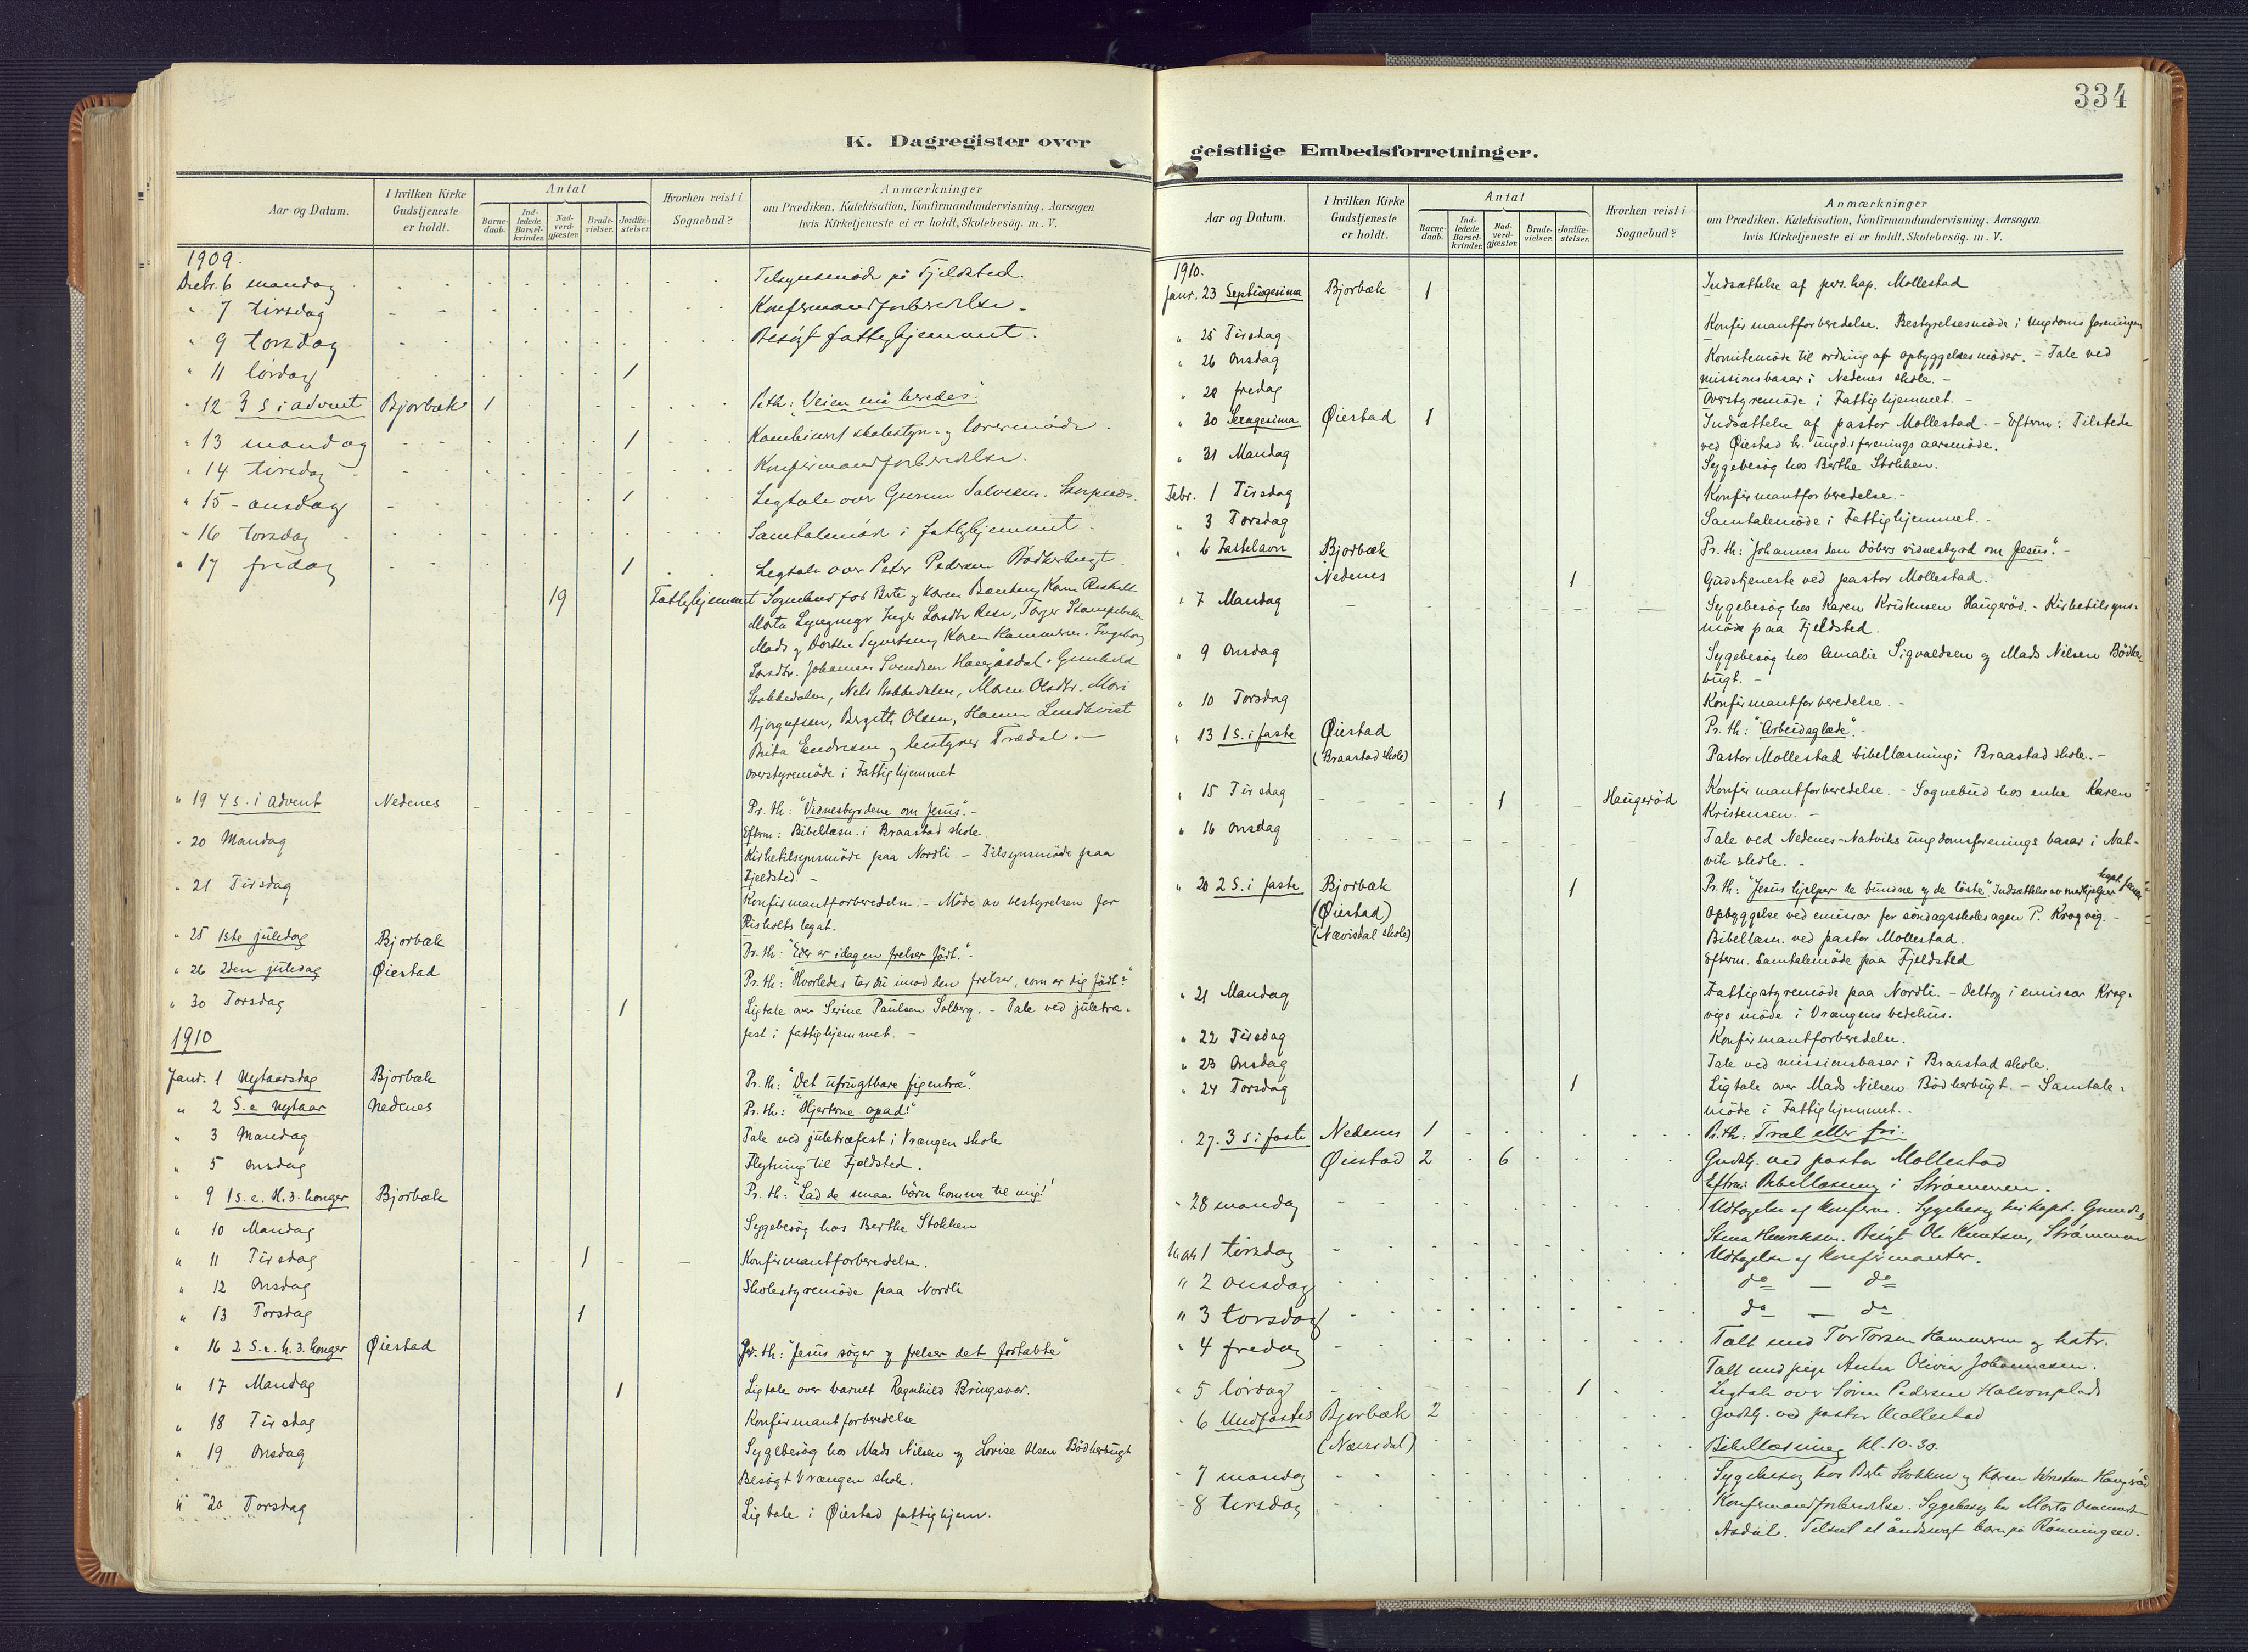 K. Dagregister over
Aar og Datum.
I hvilken Kirke Gudstjeneste er holdt.
Antal
Barne-daab.
Ind-ledede Barsel-kvinder.
Nad-verd-gjæster.
Brude-vielser.
Jordfæ-stelser.
Hvorhen reist i Sognebud?
Anmærkninger
om Prædiken, Katekisation, Konfirmandundervisning, Aarsagen
hvis Kirketjeneste ei er holdt, Skolebesög. m. V.
1909.
Decbr. 6 mandag Tilsynsmöde på Fjeldsted.
" 7 tirsdag Konfirmandforberedelse.
" 9 torsdag Besögt fattighjemmet.
" 11 lördag 1
" 12 3 S i advent Bjorbæk 1 Pr.th: "Veien må beredes".
" 13 mandag 1 Kombineret skolestyre- og lærermöde.
" 14 tirsdag Konfirmandforberedelse.
" 15 - onsdag 1 Ligtale over Gunnar Salvesen.
" 16 torsdag Samtalemöde i fattighjemmet.
" 17 fredag 1 Ligtale over Peder Pedersen Bödkerbugt.
19 Fattighjemmet Sognebud for Berte og Karen
Mads og Dorthe Syvertsen, Karen Hammeren, Ingeborg
Larsdtr. Johannes Svendsen Haugåsdal, Gunhild
Stokkedalen, Nils Stokkedalen, Maren Olsdtr. Mari
Bjorgufsen, Bergitte Olsen, Hanna Lindkvist
Brita Endresen og bestyrer Trædal.-
overstyremöde i Fattighjemmet
" 19 4 S. i advent Nedenes Pr. th: "Vidnesbyrdene om Jesus".-
Efterm: Bibellæsn. i Braastad skole
" 20 Mandag Kirketilsynsmöde paa Nordli. - Tilsynsmöde paa
Fjeldsted. -
" 21 Tirsdag Konfirmantforberedelse. - Möde av bestyrelsen for
Risholts legat.
" 25 1ste juledag Bjorbæk Pr. th: "Eder er idag en frelser födt."-
" 26 2den juledag Øiestad Pr. th: "Hvorledes tar du imod den frelser, som er dig födt?"
" 30 Torsdag 1 Ligtale over Serine Paulsen Solberg. - Tale ved juletræ-
fest i fattighjemmet. -
1910
Janr. 1 Nytaarsdag Bjorbæk Pr. th: "Det ufrugtbare figentræ".
" 2 S. e. Nytaar Nedenes Pr. th: "Hjerterne opad!"
" 3 Mandag Tale ved juletræfest i Vrængen skole
" 5 Onsdag Flytning til Fjeldsted.
" 9 1 S. e. H. 3. konger Bjorbæk Pr. th: "Lad de smaa börn komme til mig!"
" 10 Mandag Sygebesög hos Berthe Stokken
" 11 Tirsdag 1 Konfirmantforberedelse.
" 12 Onsdag Skolestyremöde paa Nordli
" 13 Torsdag 1
" 16 2 S. e. h. 3. konger Øiestad Pr. th: "Jesus söger og frelser det fortabte"
" 17 Mandag 1 Ligtale over barnet Ragnhild Bringsvor.
" 18 Tirsdag Konfirmantforberedelse
" 19 Onsdag Sygebesög hos Mads Nilsen og Lovise Olsen Bödkerbugt
Besögt Vrængen skole.
" 20 Torsdag Ligtale i Øiestad fattighjem.
334
geistlige Embedsforretninger.
Aar og Datum.
I hvilken Kirke Gudstjeneste er holdt.
Antal
Barne-daab.
Ind-ledede Barsel-kvinder.
Nad-verd-gjæster.
Brude-vielser.
Jordfæ-stelser.
Hvorhen reist i Sognebud?
Anmærkninger
om Prædiken, Katekisation, Konfirmandundervisning, Aarsagen
hvis Kirketjeneste ei er holdt, Skolebesög. m. V.
1910.
Janr. 23 Septuagesima Bjorbæk 1 Indsættelse af pers. kap. Mollestad
" 25 Tirsdag Konfirmantforberedelse. Bestyrelsesmöde i Ungdomsforeningen
" 26 Onsdag Komitemöde til ordning af opbyggelsesmöder. - Tale ved
missionsbasar i Nedenes skole. -
" 28 fredag Overstyremöde i Fattighjemmet. -
" 30 Sexagesima Øiestad 1 Indsættelse af pastor Mollestad. - Efterm: Tilstede
ved Øiestad kr. ungd.sforenings aarsmöde.
" 31 Mandag Sygebesög hos Berthe Stokken.
Febr. 1 Tirsdag Konfirmantforberedelse. -
" 3 Torsdag Samtalemöde i Fattighjemmet. -
" 6 Fastelavn Bjorbæk Pr. th: "Johannes den döbers vidnesbyrd om Jesus". -
Nedenes 1 Gudstjeneste ved pastor Mollestad.
" 7 Mandag Sygebesög hos Karen Kristensen Haugeröd. - Kirketilsyns-
möde paa Fjeldsted.
" 9 Onsdag Sygebesög hos Amalie Sigvaldsen og Mads Nilsen Bödker-
bugt. -
" 10 Torsdag Konfirmantforberedelse. -
" 13 1 S. i faste Øiestad Pr. th: "Arbeidsglæde". -
(Braastad skole) Pastor Mollestad bibellæsning i Braastad skole. -
" 15 Tirsdag 1 Haugeröd Konfirmantforberedelse. - Sognebud hos enke Karen
Kristensen. -
" 16 Onsdag Tale ved Nedenes-Natviks ungdomsforenings basar i Nat-
vik skole. -
" 20 2 S. i faste Bjorbæk 1 Pr. th: "Jesus hjelper de bundne og de löste". Indsættelse av medhjelper kapt.
(Øiestad) Opbyggelse ved emissær for söndagsskolesagen P. Krogvig. -
(Nævisdal skole) Bibellæsn. ved pastor Mollestad.
Efterm. Samtalemöde paa Fjeldsted
" 21 Mandag Fattigstyremöde paa Nordli. - Deltog i emissær Krog-
vigs möde i Vrængens bedehus.
" 22 Tirsdag Konfirmantforberedelse.
" 23 Onsdag Tale ved missionsbasar i Braastad skole.
" 24 Torsdag 1 Ligtale over Mads Nilsen Bödkerbugt. - Samtale-
möde i Fattighjemmet. -
" 27. 3 S i faste Nedenes 1 Pr.th: Træl eller fri.
Øiestad 2 6 Gudstj. ved pastor Mollestad
Efterm: Bibellæsning i Strömmen.
" 28 mandag Udtagelse af konfirm. Sygebesög hos kapt.
Stena Henriksen. Besögt Ole Knutsen, Strömmen
Mars 1 tirsdag Udtagelse af konfirmanter.
" 2 onsdag do — do
" 3 torsdag do — do
" 4 fredag Talt med Tor Torsen Hammeren og hstr.
Talt med pige Anna Olivia Johannesen.
" 5 lördag 1 Ligtale over Sören Pedersen Halvorsplads
" 6 Midfaste Bjorbæk 2 Gudstj. ved pastor Mollestad
(Nævisdal) Bibellæsning kl. 10.30.
" 7 mandag Sygebesög hos Berte Stokken og Karen Kristensen Haugeröd
" 8 tirsdag Konfirmandforberedelse. Sygebesög hos Marta
Asdal. Tilseet et åndssvagt barn på Rönningen.